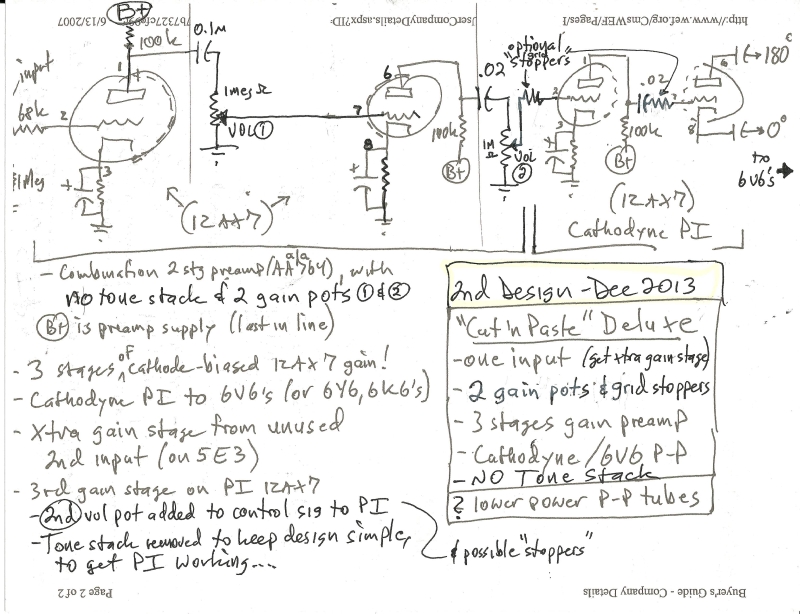 http://www.wef.org/CmsWEF/Pages/I
UserCompanyDetails.aspx?ID=
7b7327cfe
6/13/2007
B+
100k
0.1M
input
68k
1
2
3
1Meg
+
1meg Ω
VOL①
(12AX7)
6
7
8
+
100k
B+
.02
optional
grid
"stoppers"
1M
Ω
Vol
②
1
2
3
+
.02
100k
B+
6
7
8
180°
0°
to
6V6's
(12AX7)
Cathodyne PI
- Combination 2 stg preamp (AA764), with
a/a
no tone stack & 2 gain pots ① & ②
B+ is preamp supply (last in line)
- 3 stages of cathode-biased 12AX7 gain!
- Cathodyne PI to 6V6's (or 6Y6, 6K6's)
- Xtra gain stage from unused
2nd input (on 5E3)
- 3rd gain stage on PI 12AX7
- 2nd vol pot added to control sig to PI
- Tone stack removed to keep design simple,
to get PI working...
& possible "stoppers"
2nd Design - Dec 2013
"Cut 'n Paste" Deluxe
- one input (get xtra gain stage)
- 2 gain pots & grid stoppers
- 3 stages gain preamp
- Cathodyne / 6V6 P-P
- NO Tone Stack
? lower power P-P tubes
Page 2 of 2
Buyer's Guide - Company Details